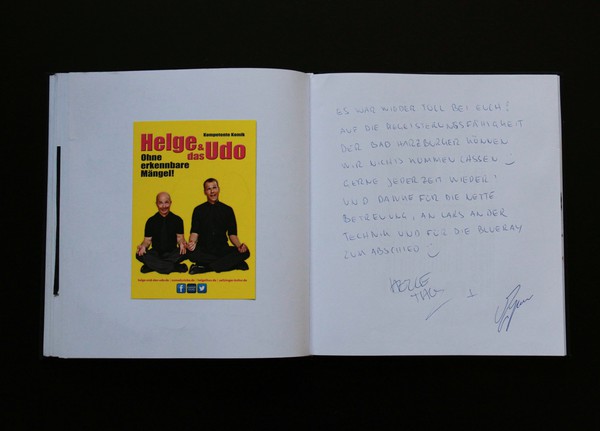 Kompetente Komik
Helge &
das Udo
Ohne
erkennbare
Mängel!
ES WAR WIEDER TOLL BEI EUCH!
AUF DIE BEGEISTERUNGSFÄHIGKEIT
DER BAD HARZBURGER KÖNNEN
WIR NICHTS KOMMEN LASSEN
GERNE JEDERZEIT WIEDER!
UND DANKE FÜR DIE NETTE
BETREUUNG, AN LARS AN DER
TECHNIK UND FÜR DIE BLUERAY
ZUM ABSCHIED
HELGE
THUN